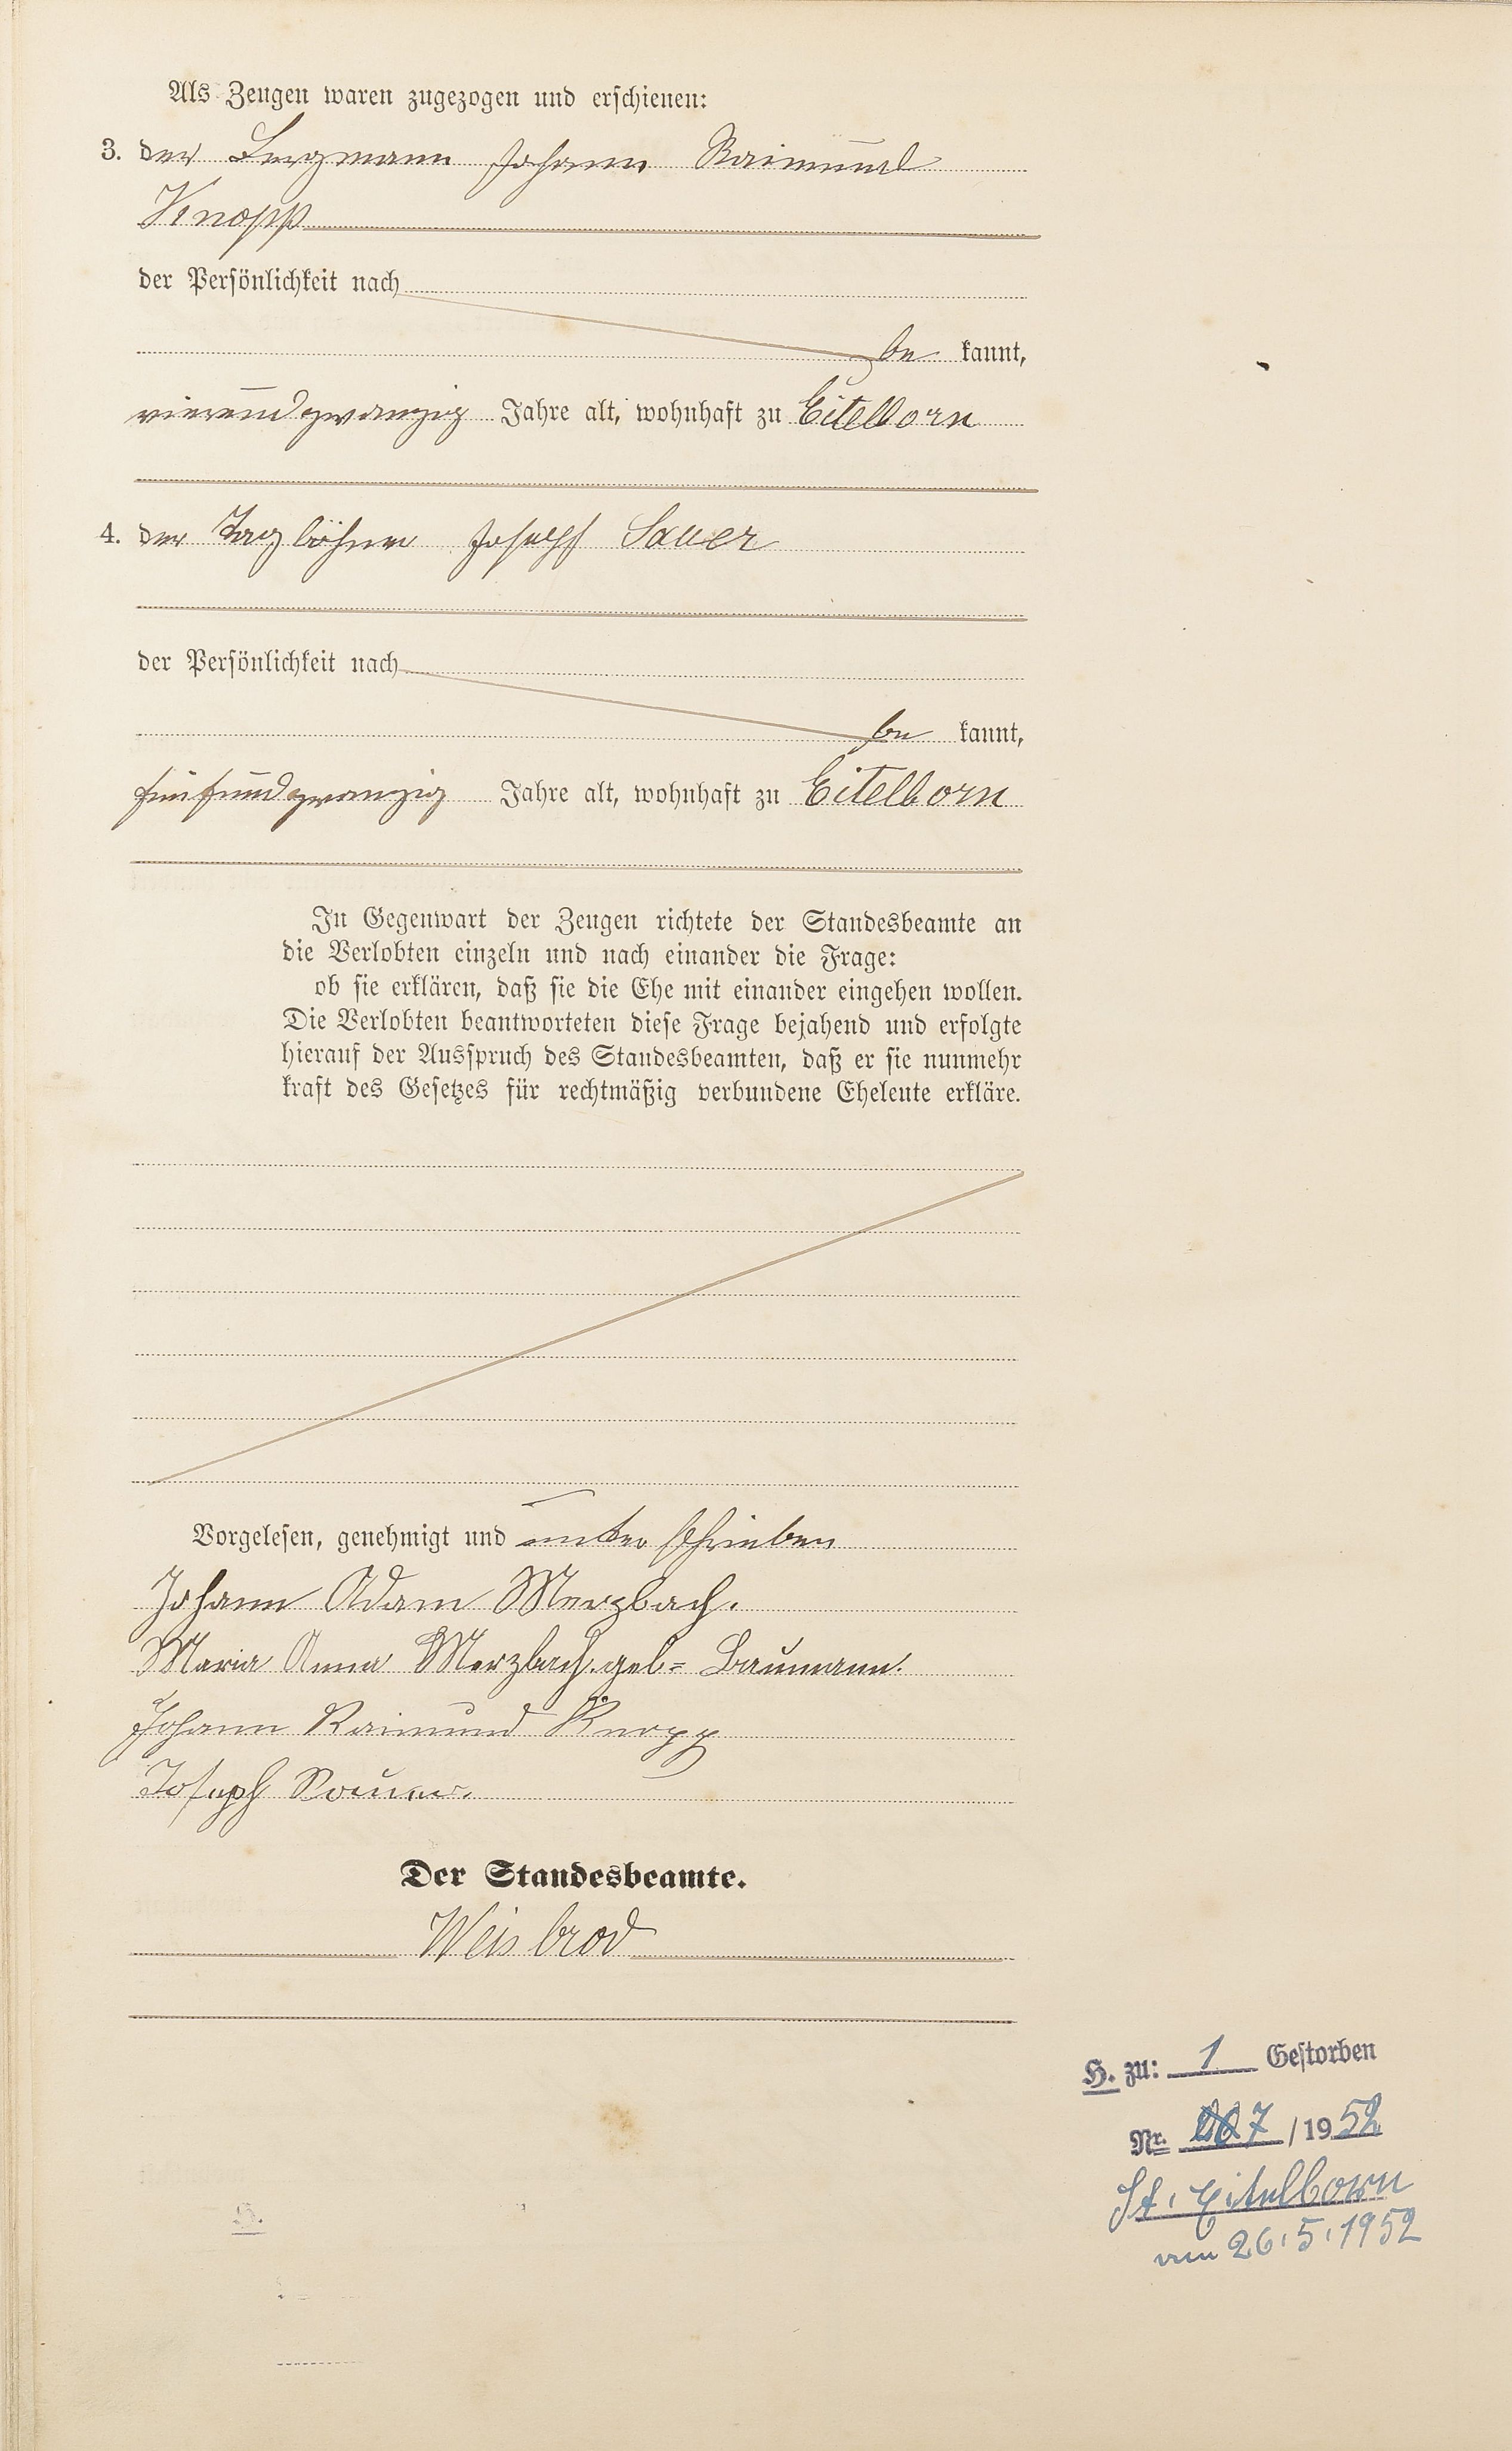 Als Zeugen waren zugezogen und erschienen:
3. der Bergmann Johann Raimund
Knopp
der Persönlichkeit nach
be kannt,
vierundzwanzig Jahre alt, wohnhaft zu Eitelborn
4. der Taglöhner Joseph Sauer
der Persönlichkeit nach
be kannt,
fünfundzwanzig Jahre alt, wohnhaft zu Eitelborn
In Gegenwart der Zeugen richtete der Standesbeamte an
die Verlobten einzeln und nach einander die Frage:
ob sie erklären, daß sie die Ehe mit einander eingehen wollen.
Die Verlobten beantworteten diese Frage bejahend und erfolgte
hierauf der Ausspruch des Standesbeamten, daß er sie nunmehr
kraft des Gesetzes für rechtmäßig verbundene Eheleute erkläre.
Vorgelesen, genehmigt und unterschrieben
Johann Adam Merzbach.
Maria Anna Merzbach. geb= Baumann.
Johann Raimund Knopp
Joseph Sauer.
Der Standesbeamte.
Weisbrod
H. zu: 1 Gestorben
Nr. 7 /1952
St. Eitelborn
vom 26.5.1952
H.